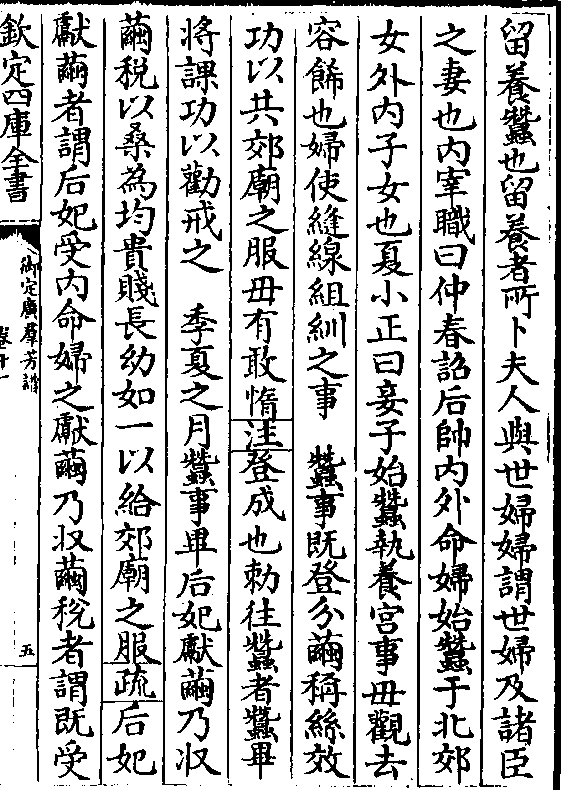 留養蠶也留養者所卜夫人與世婦婦謂世婦及諸臣
之妻也内宰職曰仲春詔后帥内外命婦始蠶于北郊
女外内子女也夏小正曰妾子始蠶執養宫事毋觀去
容飾也婦使縫線組紃之事　蠶事既登分繭稱絲效
功以共郊廟之服毋有敢惰注登成也勅往蠶者蠶畢
將課功以勸戒之　季夏之月蠶事畢后妃獻繭乃収
繭税以桑為均貴賤長幼如一以給郊廟之服疏后妃
獻繭者謂后妃受内命婦之獻繭乃収繭税者謂既受
欽定四庫全書
御定廣羣芳譜
卷十一
五